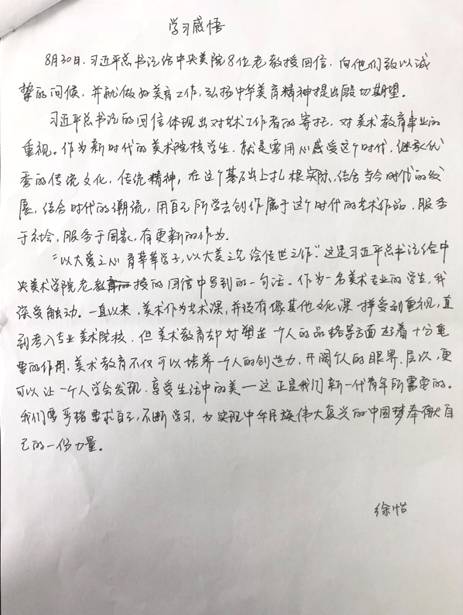 学习感悟
8月30日，习近平总书记给中央美院8位老教授回信，向他们致以诚
挚的问候，并就做好美育工作，弘扬中华美育精神提出殷切期望。
习近平总书记的回信体现出对艺术工作者的寄托，对美术教育事业的
重视。作为新时代的美术院校学生，就是需用心感受这个时代，继承优
秀的传统文化，传统精神，在这个基础上扎根实际，结合当今时代的发
展，结合时代的潮流，用自己所学去创作属于这个时代的艺术作品，服务
于社会，服务于国家，有更新的作为。
“以大爱之心育莘莘学子，以大美之艺绘传世之作”这是习近平总书记给中
央美术学院老教授的回信中写到的一句话。作为一名美术专业的学生，我
深受触动。一直以来，美术作为艺术课，并没有像其他文化课一样受到重视，直
到考入专业美术院校，但美术教育却对塑造一个人的品格等方面起着十分重
要的作用，美术教育不仅可以培养一个人的创造力，开阔个人的眼界、层次，更
可以让一个人学会发现、享受生活中的美——这正是我们新一代青年所需要的。
我们要严格要求自己，不断学习，为实现中华民族伟大复兴的中国梦奉献自
己的一份力量。
徐怡